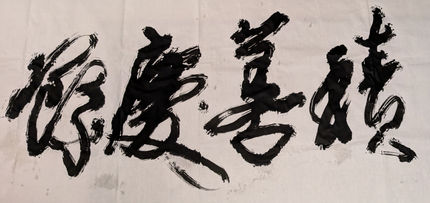 積善慶餘